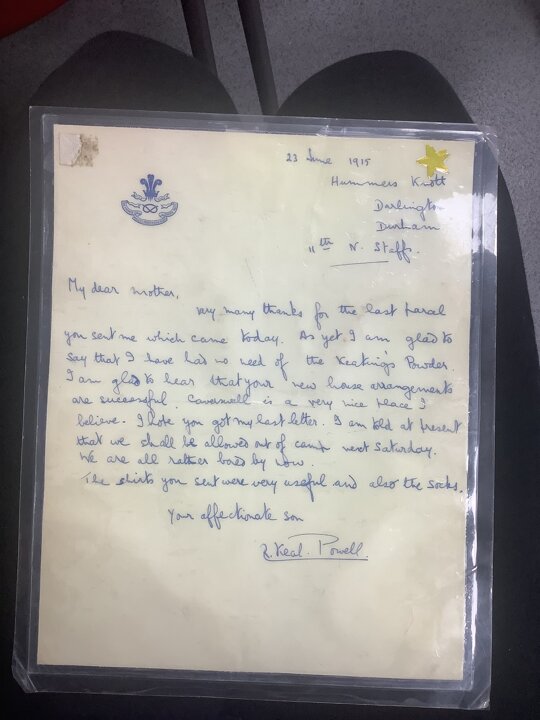 23 June 1915
Hummers Knott
Darlington
Durham
11th N. Staffs.
My dear mother,
very many thanks for the last parcel
you sent me which came today. As yet I am glad to
say that I have had no need of the Keating's Powder.
I am glad to hear that your new house arrangements
are successful. Caverswall is a very nice place I
believe. I hope you got my last letter. I am told at present
that we shall be allowed out of camp next Saturday.
We are all rather bored by now.
The shirts you sent were very useful and also the socks.
Your affectionate son
R. Keal. Powell.